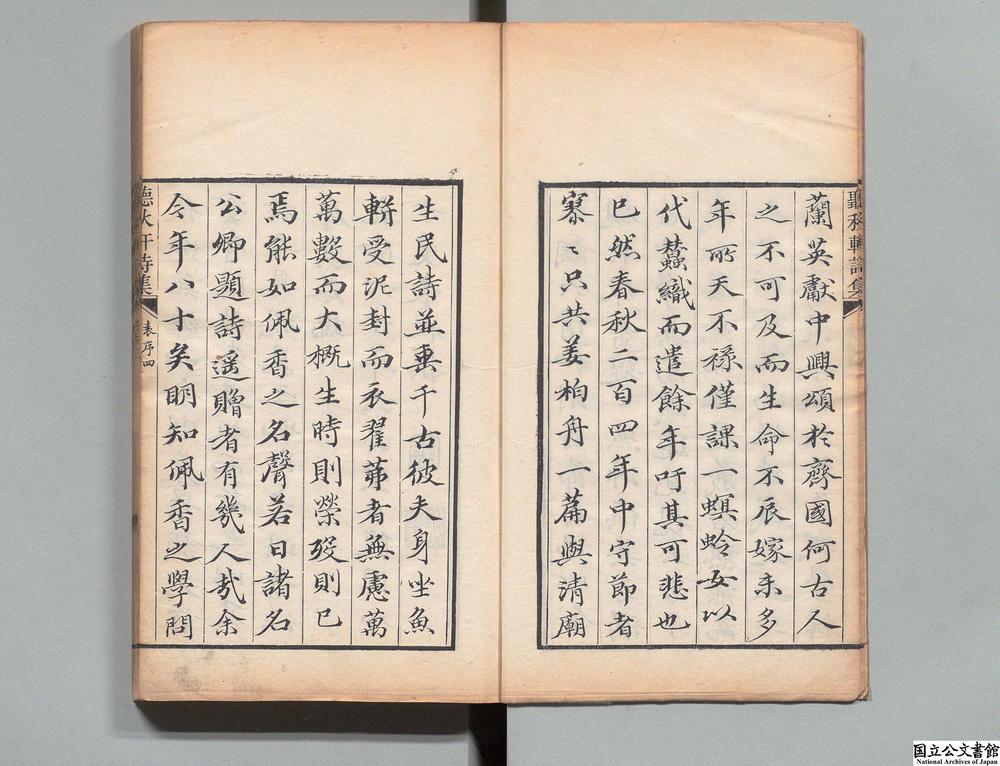 蘭英獻中興頌於齊國何古人
之不可及而生命不辰嫁未多
年所天不祿僅課一螟蛉女以
代蠶織而遣餘年吁其可悲也
已然春秋二百四年中守節者
寥〻只共姜柏舟一篇與清廟
生民詩並垂千古彼夫身坐魚
軿受泥封而衣翟茀者無慮萬
萬數而大概生時則榮歿則已
焉能如佩香之名聲若日諸名
公卿題詩遥贈者有幾人哉余
今年八十矣明知佩香之學問
聽秋軒詩集
表序四
國立公文書館
National Archives of Japan